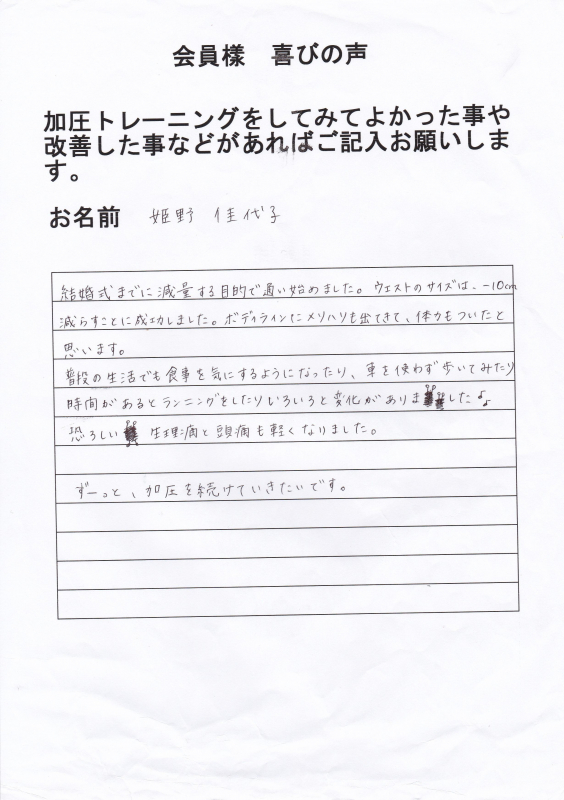 会員様　喜びの声
加圧トレーニングをしてみてよかった事や
改善した事などがあればご記入お願いしま
す。
お名前　姫野 佳代子
結婚式までに減量する目的で通い始めました。ウェストのサイズは、-10cm
減らすことに成功しました。ボディラインにメリハリも出てきて、体力もついたと
思います。
普段の生活でも食事を気にするようになったり、車を使わず歩いてみたり
時間があるとランニングをしたりいろいろと変化がありました♪
恐ろしい 生理痛と頭痛も軽くなりました。
ずーっと、加圧を続けていきたいです。